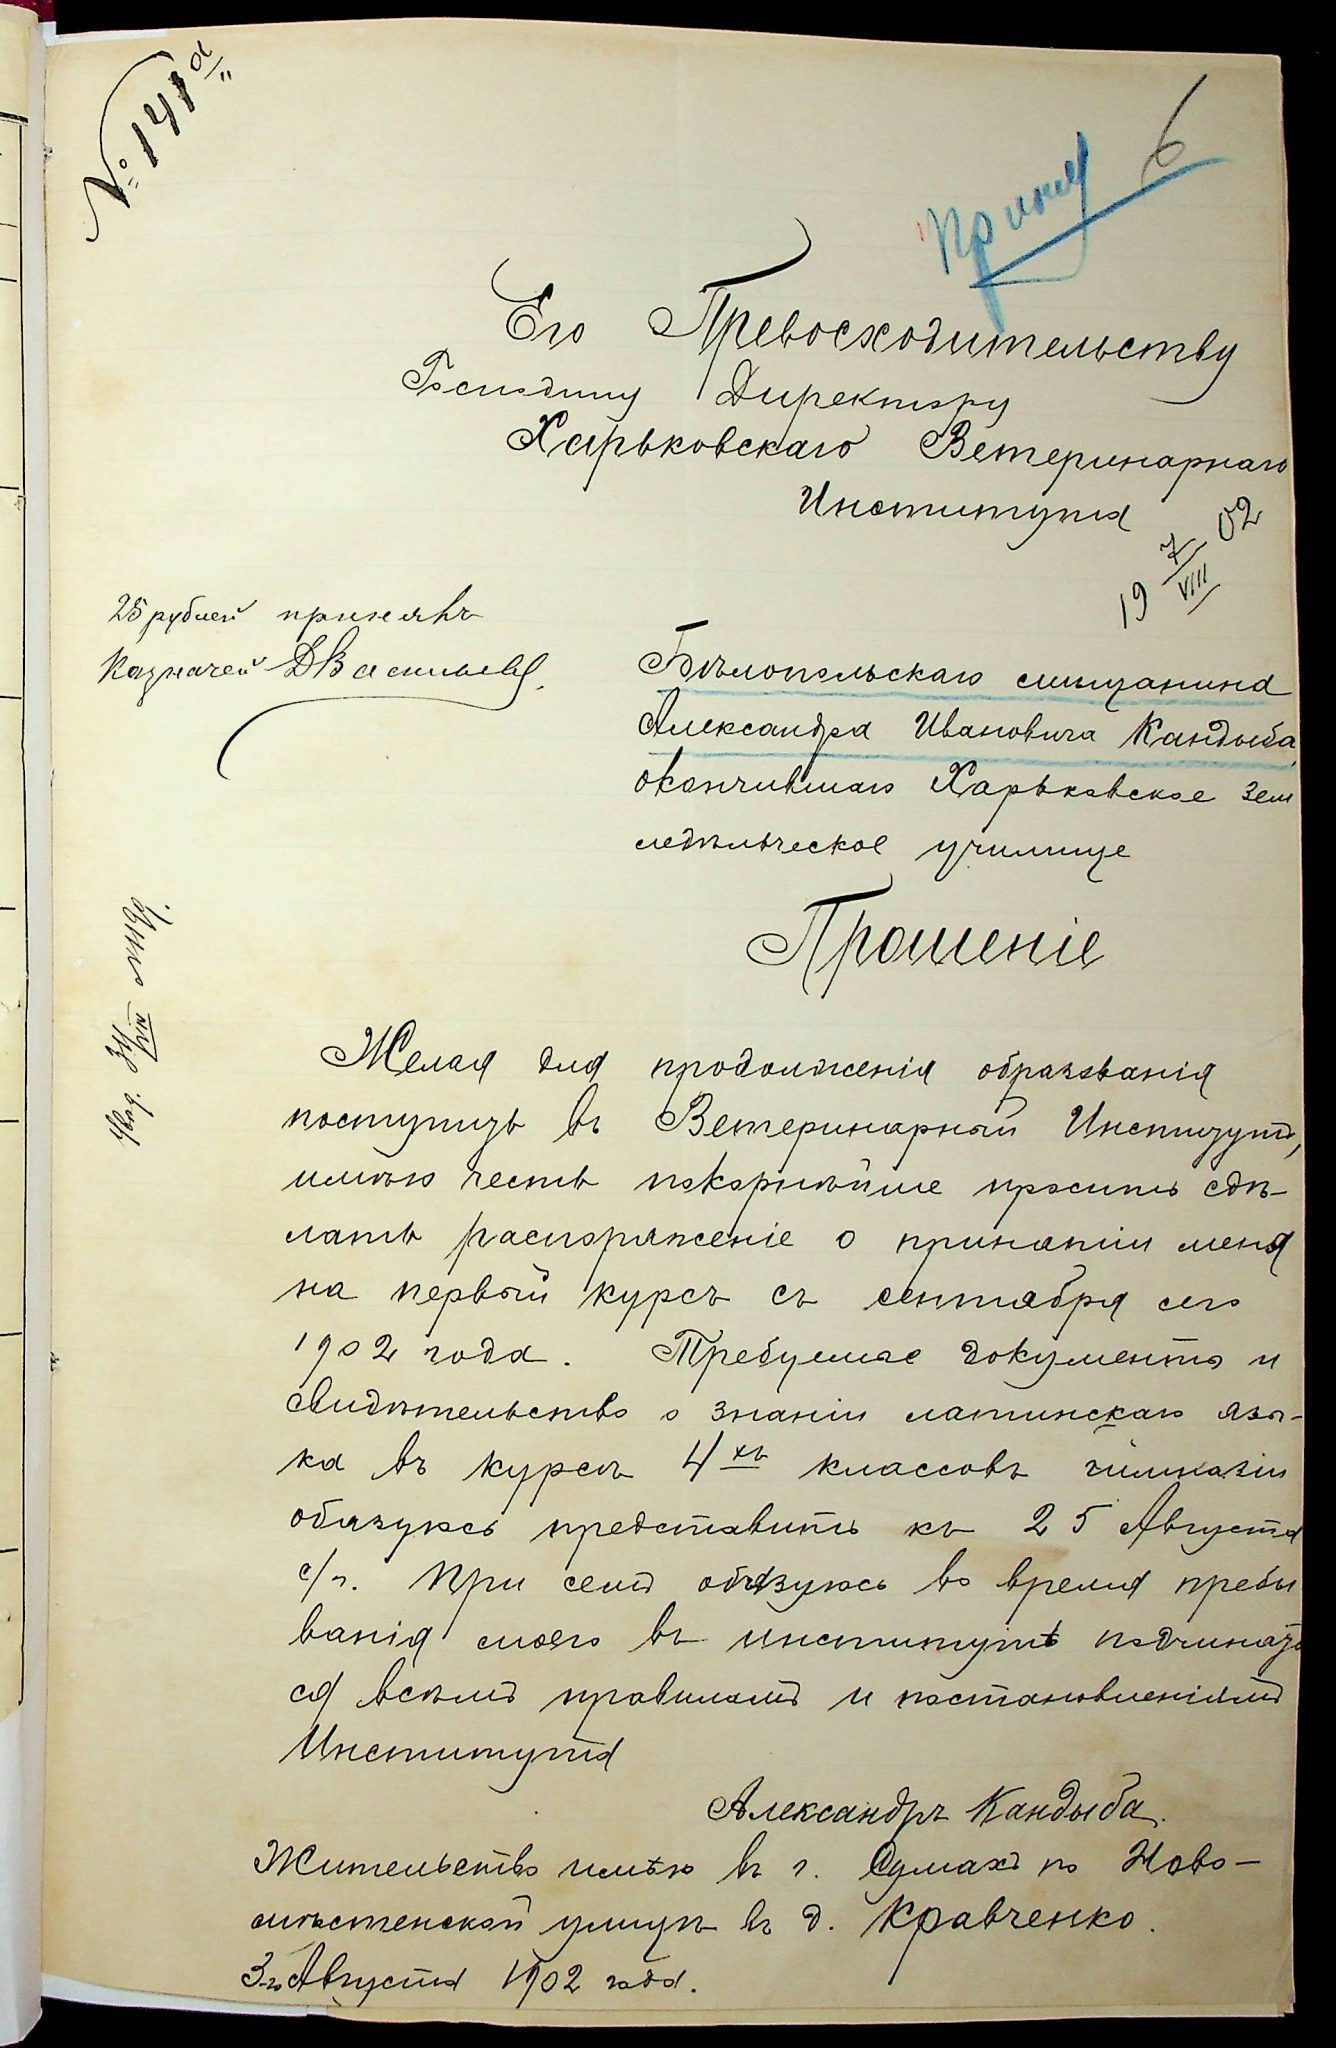 № 141а
6
Приня
Его Превосходительству
Господину Директору
Харьковскаго Ветеринарнаго
Института
19 7/VIII 02
25 рублей принялъ
Казначей ДВасильев
Бѣлопольскаго мѣщанина
Александра Ивановича Кандыба,
окончившаго Харьковское зем
ледѣльческое училище
Прошеніе
Желая для продолженія образованія
поступить въ Ветеринарный Институтъ,
имѣю честь покорнѣйше просить сдѣ-
лать распоряженіе о принятіи меня
на первый курсъ съ сентября сего
1902 года. Требуемые документы и
свидѣтельство о знаніи латинскаго язы-
ка въ курсѣ 4хъ классовъ гимназіи
обязуюсь представить къ 25 Августа
с/г. При семъ обязуюсь во время пребы
ванія моего въ институтѣ подчинять
ся всѣмъ правиламъ и постановленіямъ
Института
Александръ Кандыба.
Жительство имѣю въ г. Сумахъ по Ново-
мѣстенской улицѣ въ д. Кравченко.
3-го Августа 1902 года.